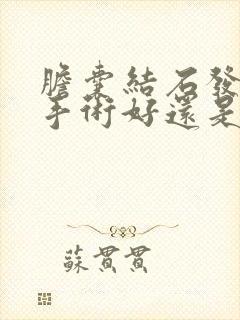 膽囊結石發
手術好還是
蘇貫貫